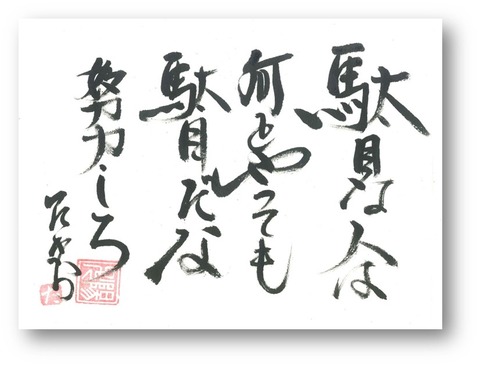 駄目な人は
何をやっても
駄目だな
努力しろ